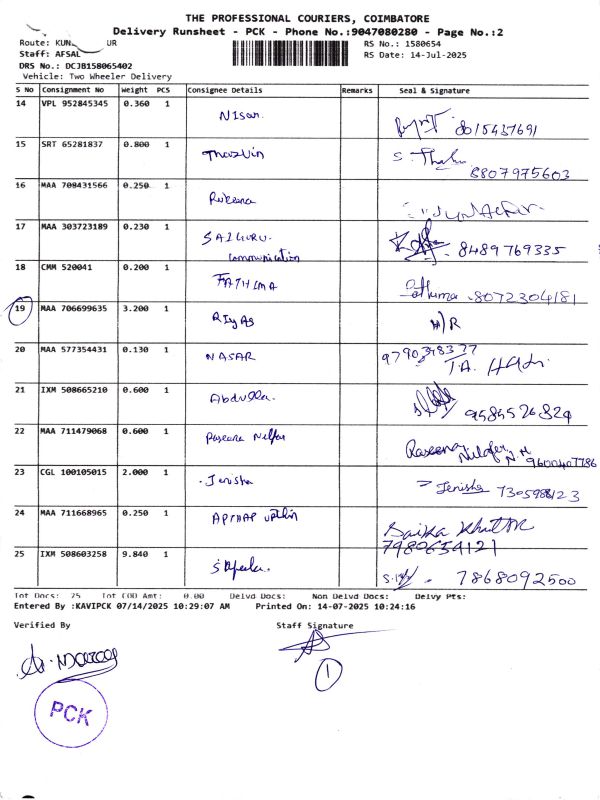 THE PROFESSIONAL COURIERS, COIMBATORE
Delivery Runsheet - PCK - Phone No.:9047080280 - Page No.:2
Route: KUN UR
Staff: AFSAL
RS No.: 1580654
RS Date: 14-Jul-2025
DRS No.: DCJB158065402
Vehicle: Two Wheeler Delivery
S No Consignment No Weight PCS Consignee Details Remarks Seal & Signature
14 VPL 952845345 0.360 1 Nisar 8015437691
15 SRT 65281837 0.800 1 8807975603
16 MAA 708431566 0.250 1 Rukeena
17 MAA 303723189 0.230 1 SAIGURU communication 8489769335
18 CMM 520041 0.200 1 FATHIMA Fathima 8072304181
19 MAA 706699635 3.200 1 RIYAS N/R
20 MAA 577354431 0.130 1 NASAR
21 IXM 508665210 0.600 1 Abdulla 9585526824
22 MAA 711479068 0.600 1 Raseena Nilfar Raseena Nilofer N H
23 CGL 100105015 2.000 1 Jenisha Jenisha
24 MAA 711668965 0.250 1 7980654121
25 IXM 508603258 9.840 1 7868092500
Tot Docs: 25 Tot COD Amt: 0.00 Delvd Docs: Non Delvd Docs: Delvy Pts:
Entered By :KAVIPCK 07/14/2025 10:29:07 AM Printed On: 14-07-2025 10:24:16
Verified By Staff Signature
1
PCK